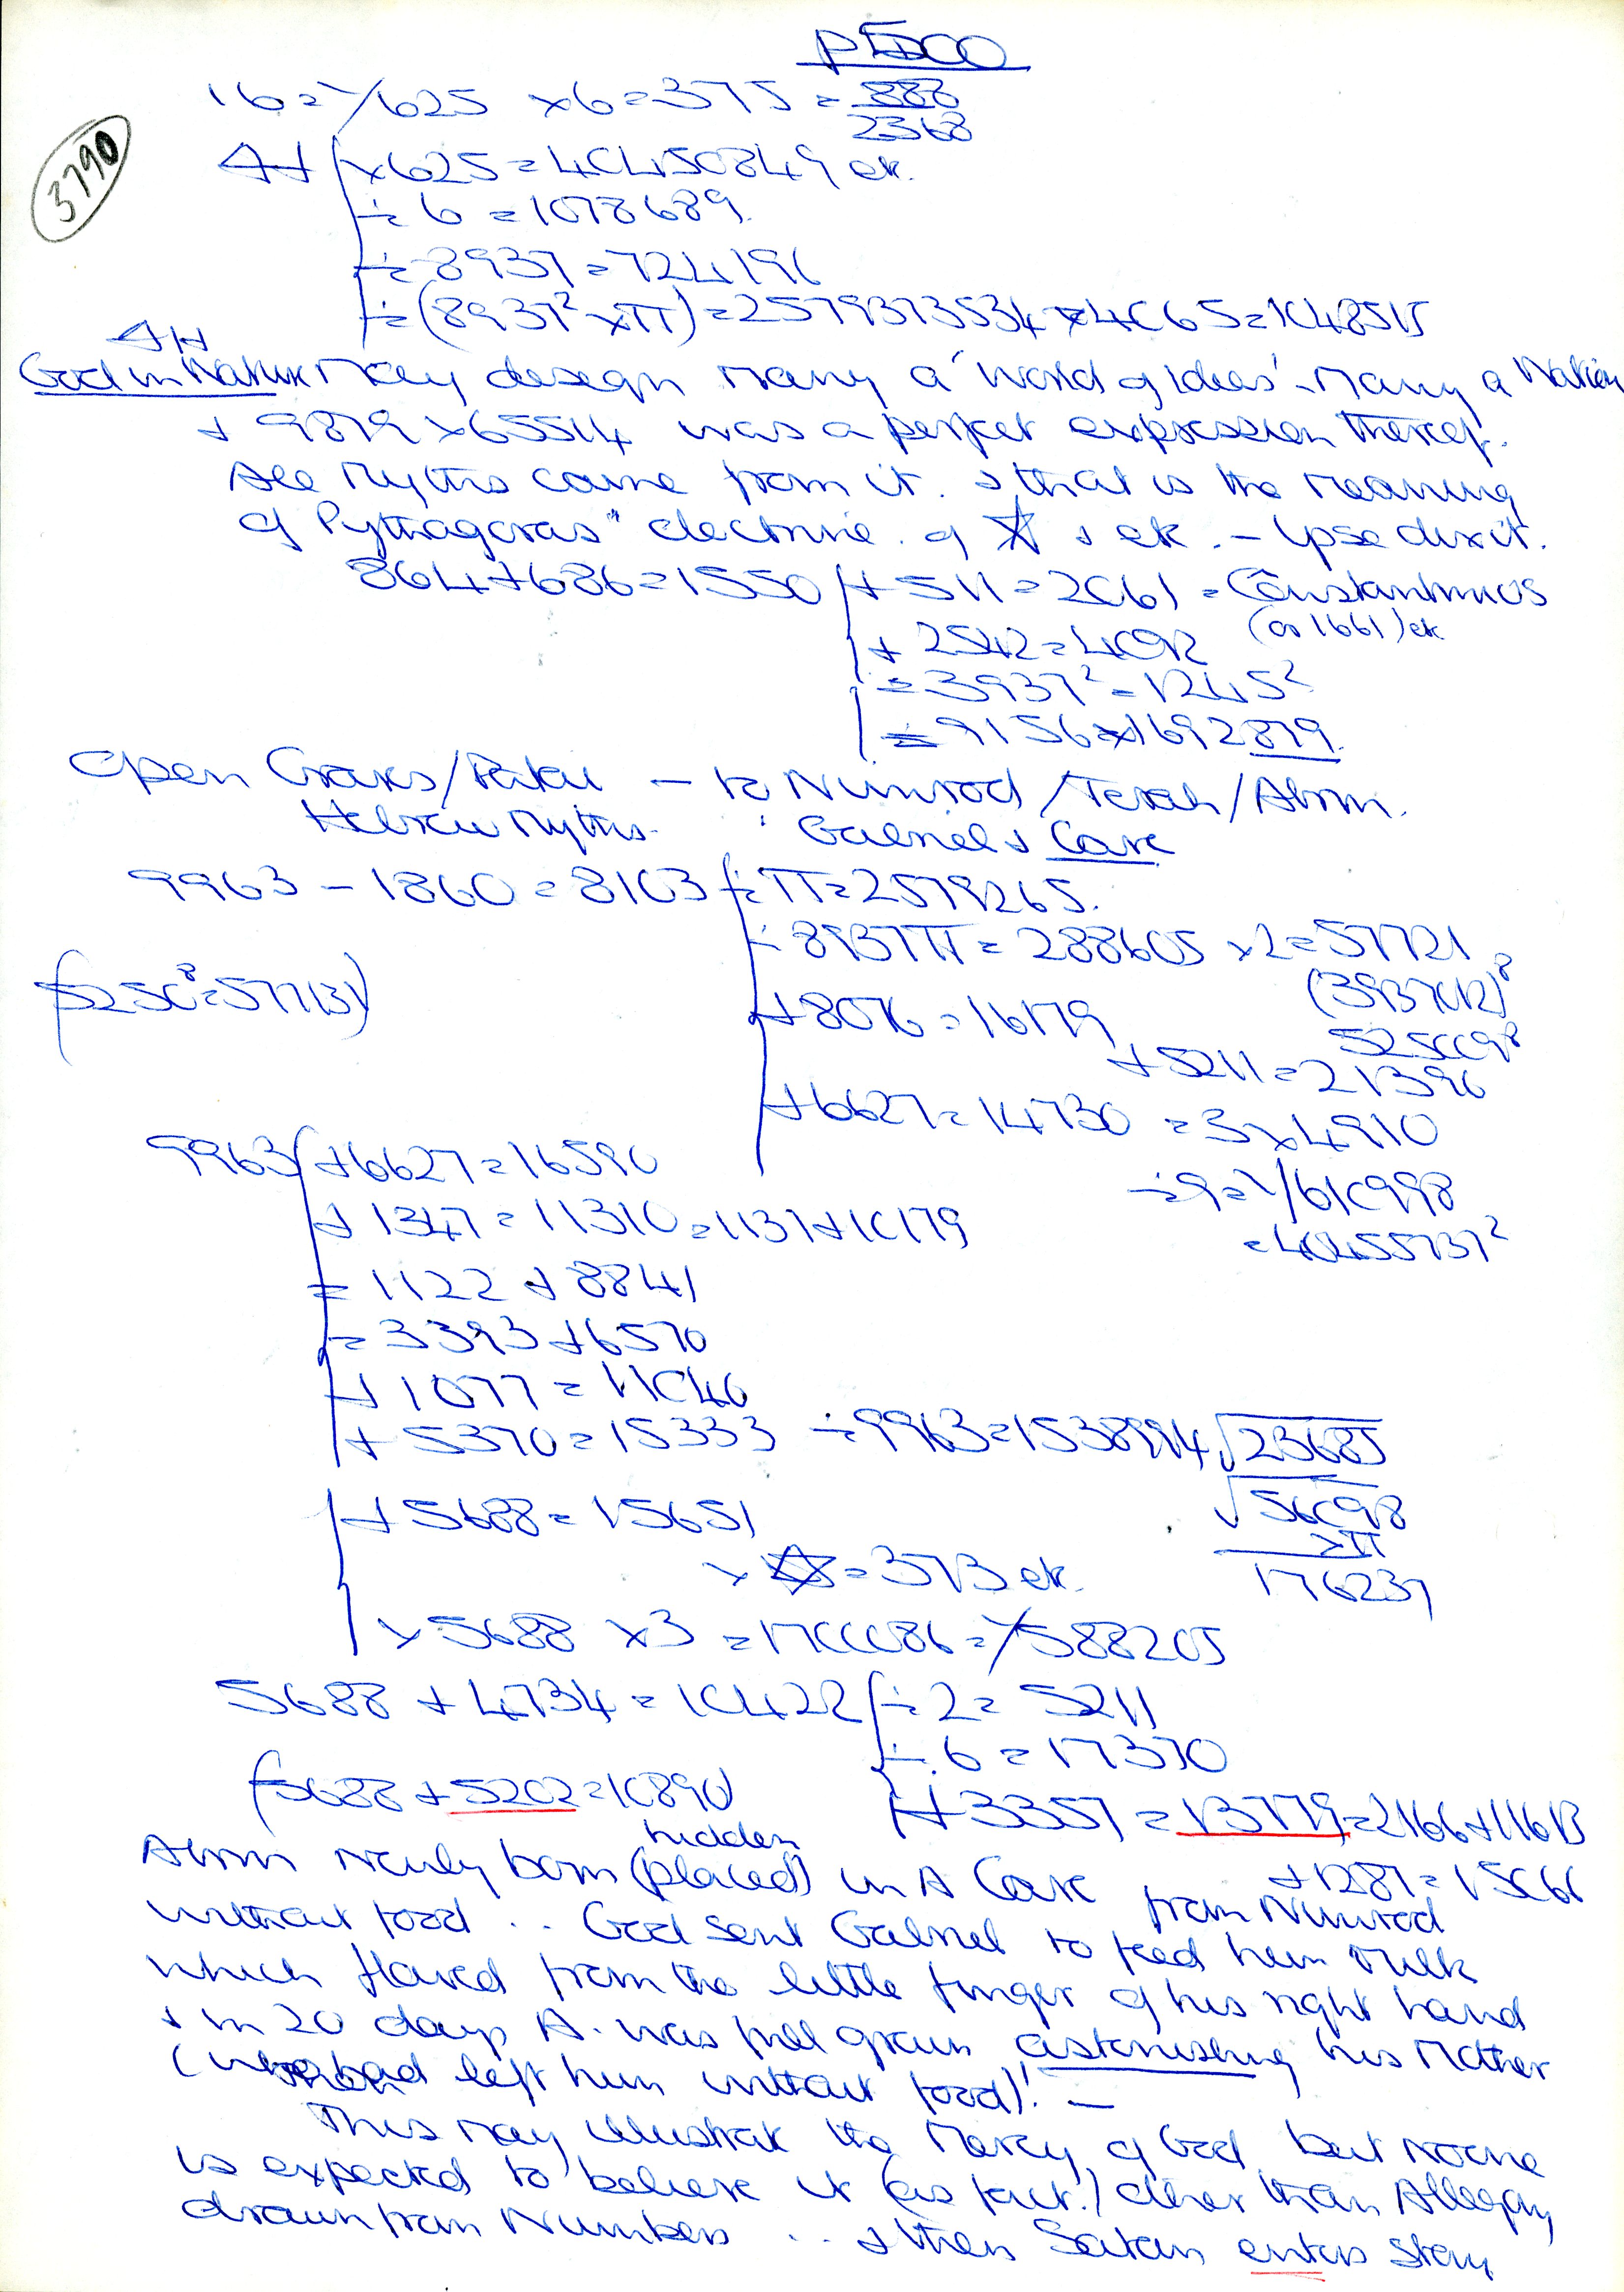 p500
3790
16 = 1/625 x6 = 375 = 888
2368
x625 = 40450849 etc.
÷ 6 = 1078689.
÷ 8937 = 724196
÷ (8937² x π) = 2579373534 x 4065 = 1048515
God in Nature May design many a 'World of Ideas' - Many a Nation
+ 9879 x 65514 was a perfect expression thereof.
All Myths came from it. & that is the meaning
of Pythagoras" doctrine. of ☆ s etc. - Ipse dixit.
864 + 686 = 1550 + 511 = 2061 = Constantinus
(or 1661) etc
+ 2542 = 4092
= 3937² = 1245²
= 9156 x 1692879.
Open Graves/ - to Nimrod / Terah / Abrm.
Hebrew Myths. Gabriel & Cave
9963 - 1860 = 8103 ÷ π = 2579265.
÷ 8937π = 288605 x2 = 57721
(3937012)⁸
(5250⁸ = 577131)
+ 8076 = 16179
525009⁸
+ 5211 = 21390
+ 6627 = 14730 = 3 x 4910
9963 + 6627 = 16590
÷ 9 = 1/610998
+ 1347 = 11310 = 1131 + 10179
= 40455737²
= 1122 + 8841
= 3393 + 6570
+ 1077 = 11040
+ 5370 = 15333 ÷ 9963 = 1538994 √23685
+ 5688 = 15651
√56098
x π
x ✡ = 373 etc.
176237
x 5688 x3 = 1700086 = 1/588205
5688 + 4734 = 10422 ÷ 2 = 5211
÷ 6 = 17370
(5688 + 5202 = 10890)
+ 3357 = 13779 = 2166 + 11613
hidden
Abrm newly born (placed) in A Cave from Nimrod
+ 1287 = 15066
without food .. God sent Gabriel to feed him Milk
which flowed from the little finger of his right hand
+ in 20 days A. was full grown astonishing his Mother
(who had left him without food)! -
This may illustrate the Mercy of God but Noone
is expected to believe it (as fact!) other than Allegory
drawn from Numbers .. + then Satan enters story